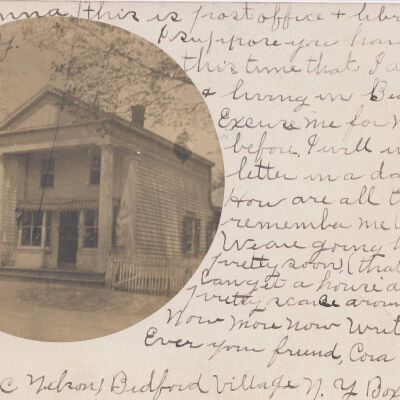 nna, this is post office + libr
y. I suppose you hav
this time that I a
+ living in Bed
Excuse me for n
before. I will w
letter in a da
How are all t
remember me t
We are going t
pretty soon, (that
can get a house a
pretty scarce aroun
Now more now Writ
Ever your friend, Cora
C Nelson, Bedford Village N. Y Box